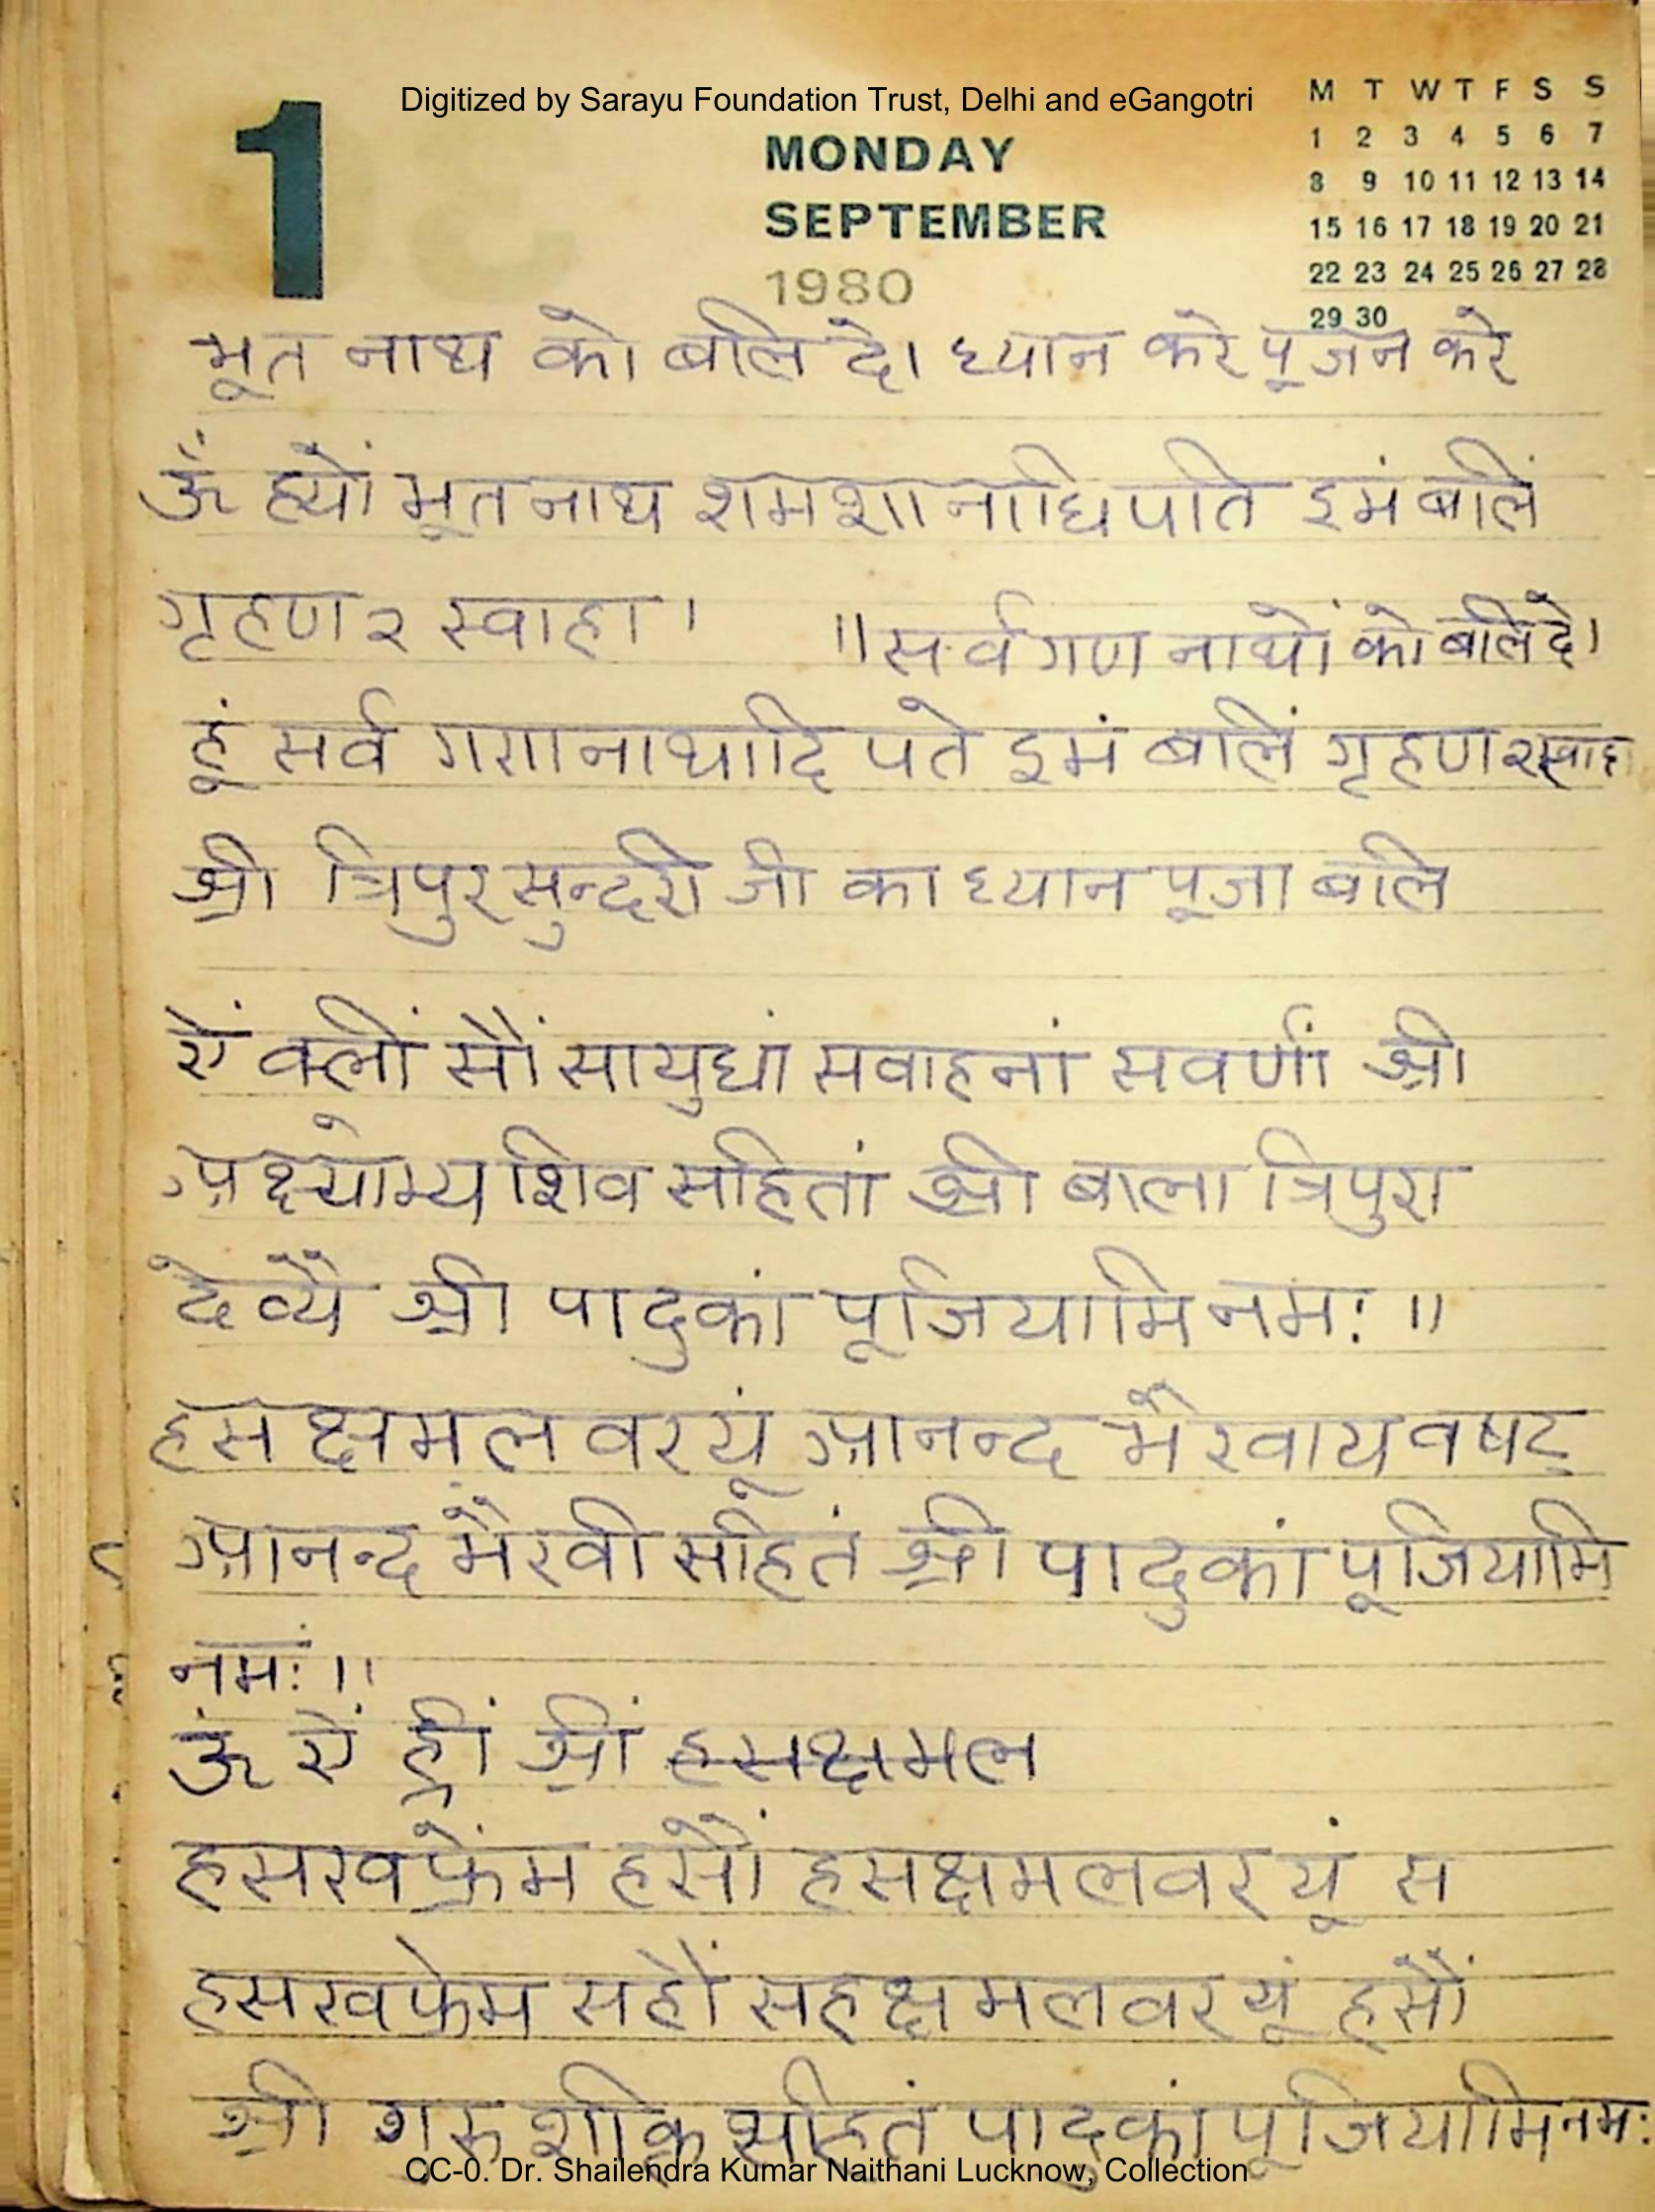 Digitized by Sarayu Foundation Trust, Delhi and eGangotri
1
MONDAY
SEPTEMBER
1980
M T W T F S S
1 2 3 4 5 6 7
8 9 10 11 12 13 14
15 16 17 18 19 20 21
22 23 24 25 26 27 28
29 30
भूत नाथ को बलि दे। ध्यान करे पूजन करे
ऊँ ह्यों भूतनाथ शमशानाधिपति इमं बलिं
गृहण २ स्वाहा । ॥ सर्व गण नाथों को बलि दे।
हूं सर्व गणनाथादि पते इमं बलिं गृहण २ स्वाहा
श्री त्रिपुर सुन्दरी जी का ध्यान पूजा बलि
ऐं क्लीं सौं सायुधां सवाहनां सवर्णां श्री
अक्ष्योभ्य शिव सहितां श्री बाला त्रिपुरा
देव्यै श्री पादुकां पूजियामि नमः ॥
हस क्षमल वरयूं आनन्द भैरवाय वषट्
आनन्द भैरवी सहितं श्री पादुकां पूजियामि
नमः ॥
ऊं ऐं ह्रीं श्रीं हसक्षमल
हसखफ्रेंम हसौं हसक्षमलवरयूं स
हसखफ्रेम सहौं सहक्षमलवरयूं हसौं
श्री गुरु शक्ति सहितं पादुकां पूजियामि नमः
CC-0. Dr. Shailendra Kumar Naithani Lucknow, Collection